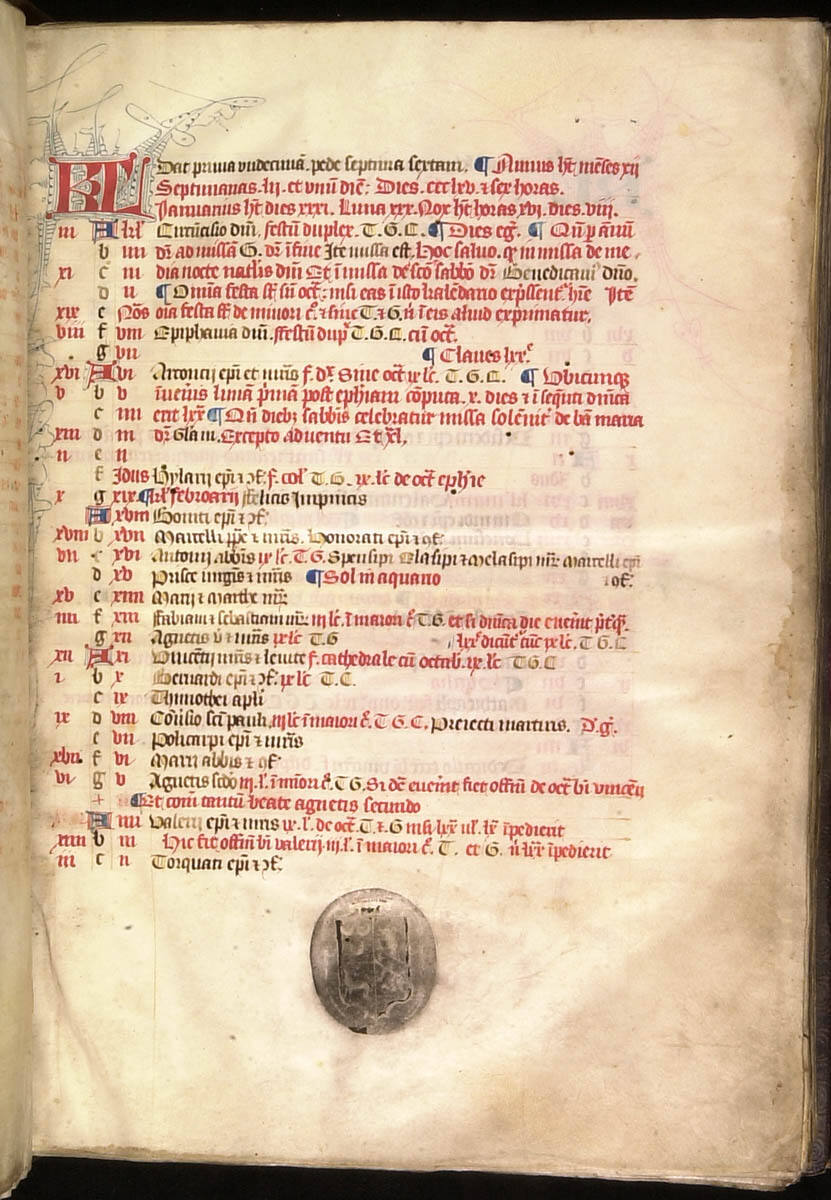 KL Dat prima undecimã. pede septima sextam. ¶ Annus ht mẽses xii
Septimanas. lii. et unũ diẽ: Dies. ccc lxv. ⁊ sex horas.
Januarius ht dies xxxi. Luna xxx. Nox ht horas xvi. dies. viii.
iii A kl Circũcisio dñi. festũ duplex. T. G. C. ¶ Dies eg̃. ¶ Qũ p ãnũ
b iiii dr̃ ad missã G. dr̃ ĩ fine Ite missa est. Hoc saluo. qp in missa de me
xi c iii dia nocte natlis dñi Et ĩ missa de scõ sabbõ dr̃ Benedicam⁹ dño.
d ii ¶ Om̃ia festa sũt ñisi eas ĩ isto kalendario
xix e Nõs oĩa festa de minori ⁊ sine T. ⁊ G. ñ ĩ eis aliud exprimatur.
viii f viii Epiphania dñi. ffestũ dup̃ T. G. C. cũ oct̃.
g vii ¶ Claues lxx̃
xvi A vi et mr̃is f. d. Sine oct̃ ix lc̃. T. G. C. ¶ Ubicumq;
v b v ĩueneris lunã p̃mã post ephiam cõputa. x. dies ⁊ ĩ sequẽti dñica
c iiii erit lxx̃ ¶ Qñ dieb; sabbis celebratur missa solẽnit̃ de bã maria
xiii d iii dr̃ Glã in. Excepto aduentu Et xl.
ii e ii
f Idus Hylarii ep̃i ⁊ ɔf. f. col̃ T. G. ix. lc̃ de oct̃ ephie
x g xix. ¶ kl̃ februarii ffelicis in pincis
A xviii Boniti ep̃i ⁊ ɔf.
xviii b xvii Marcelli pp̃e ⁊ mr̃is. Honorati ep̃i ⁊ ɔf.
vii c xvi Antonii abbis ix lc̃. T. G. Speusipi Elasipi ⁊ Melasipi mr̃. Marcelli ep̃i
d xv Prisce uirgis ⁊ mr̃is ¶ Sol in aquario ⁊ ɔf.
xv e xiiii Marii ⁊ Marthe mr̃
iiii f xiii Fabiani ⁊ sebastiani mr̃. iii lc̃. ĩ maiori c̃. T. G. et si dñica die euenit
g xii Agnetis ũ ⁊ mr̃is ix lc̃ T. G lxx̃ ix lc̃. T. G. C
xii A xi Vincẽtii mr̃is ⁊ leuite f. cathedrale cũ octab. ix. lc̃ T. G. C
i b x Bernardi ep̃i ⁊ ɔf. ix lc̃ T. C.
c ix Thimothei apl̃i
ix d viii Cõũsio scĩ pauli. iii lc̃ ĩ maiori c̃. T. G. C. Preiecti martiris. D. g̃.
e vii Policarpi ep̃i ⁊ mr̃is
xvii f vi Marii abbis ⁊ ɔf
vi g v Agnetis scdo iii. l. ĩ mĩori c̃. T. G. Si dẽ euenit fiet offm̃ de oct̃ bĩ vincẽtii
+ ¶ Et com̃ tantũ beate agnetis secundo
A iiii Valerii ep̃i ⁊ mr̃is ix. l. de oct̃. T. ⁊ G nisi lxx ul̃. lx̃ ĩpedierit
xiiii b iii Hic fit offm̃ bĩ valerii. iii. l. ĩ maiori c̃. T. et G. ñ lxx̃ ĩpedierit
iii c ii Torquati ep̃i ⁊ ɔf.